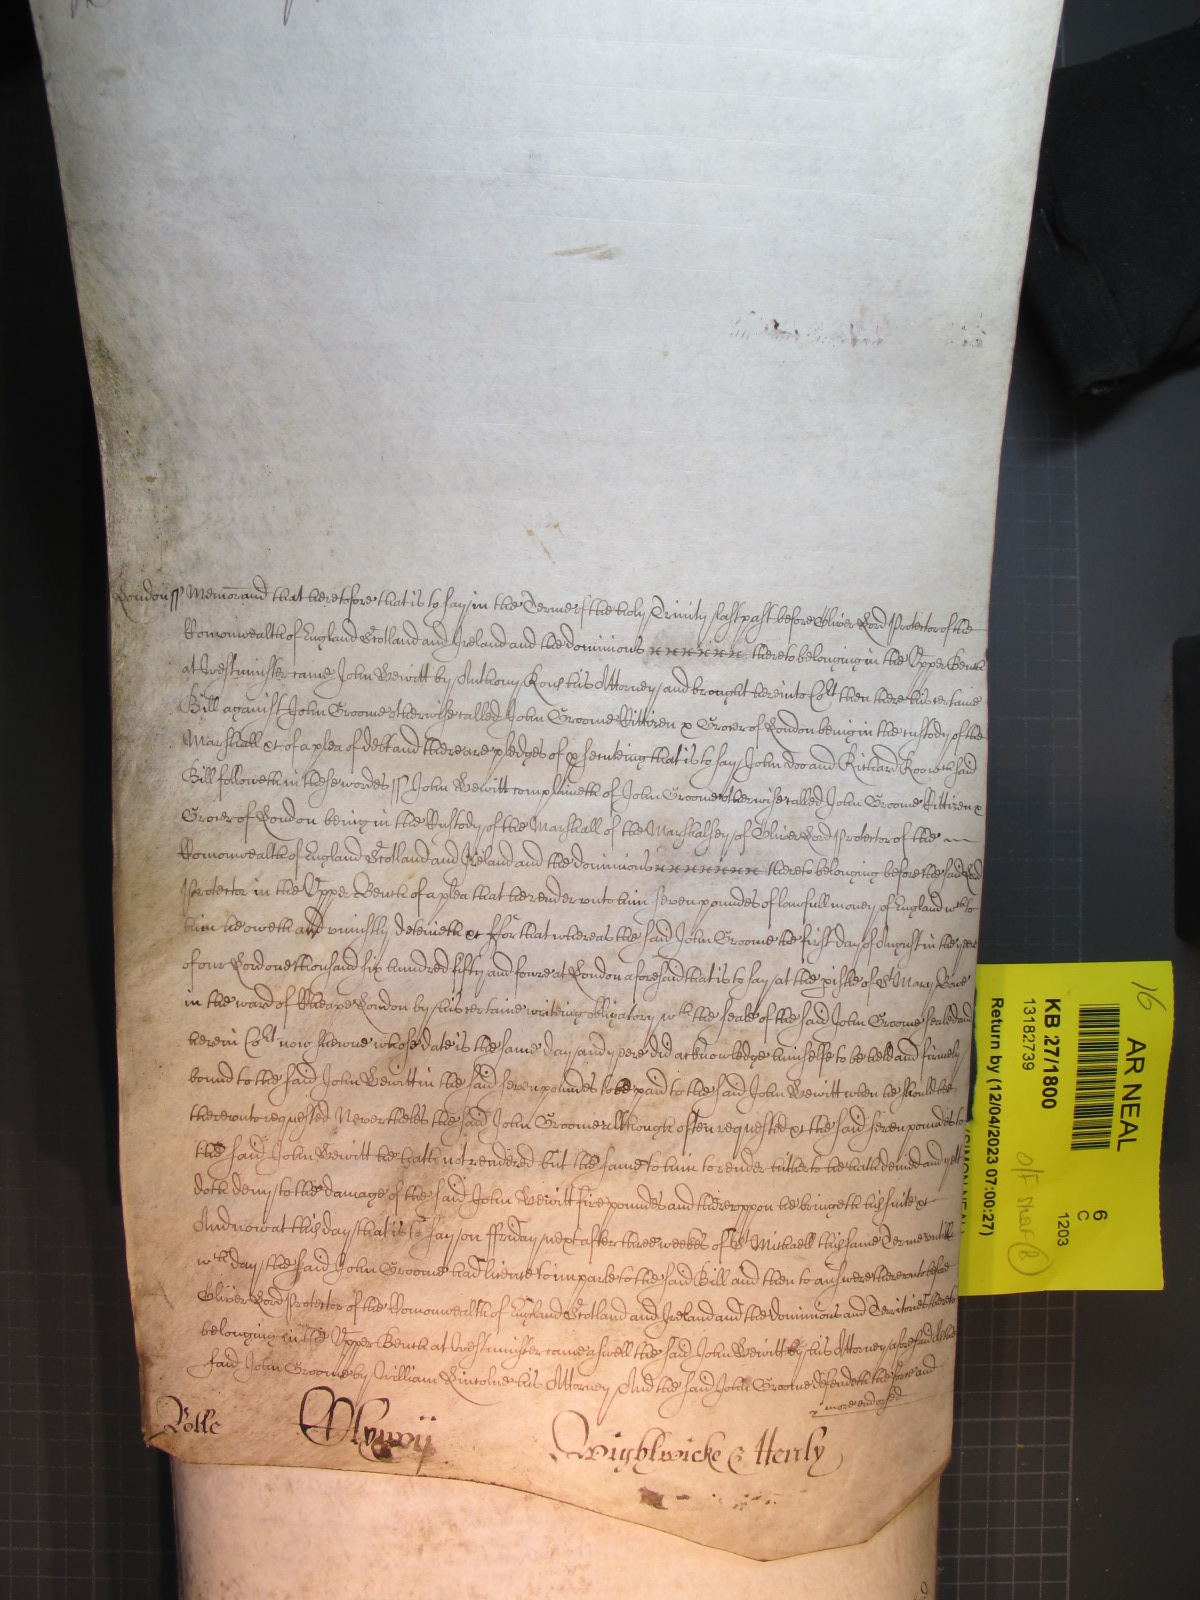 London ss Memorand that heretofore that is to say in the Terme of the holy Trinity last past before Oliver Lord Protector of the
Comonwealth of England Scotland and Ireland and the dominions xxxxxx thereto belonging in the Upper Bench
at Westminster came John Hewitt by Anthony his Attorney and brought here into Cort then there his certaine
Bill against John Groome otherwise called John Groome Cittizen x Grocer of London being in the custody of the
Marshall &c of a plea of debt and there are pledges of psecuteing that is to say John Doo and Richard Roo wch said
Bill followeth in these wordes ss John Hewitt complaineth of John Groome otherwise called John Groome Cittizen x
Grocer of London being in the Custody of the Marshall of the Marshalsey of Oliver Lord Protector of the
Comonwealth of England Scotland and Ireland and the dominions xxxxxxx thereto belonging before the said Lord
Protector in the Upper Bench of a plea that he render unto him seven poundes of lawfull money of England wch to
him he oweth and uniustly deteineth &c Ffor that whereas the said John Groome the first day of August in the yeare
of our Lord one thousand six hundred fifty and foure at London aforesaid that is to say at the pishe of St Mary Bowe
in the ward of Cheape London by his certaine writeing obligatory wth the seale of the said John Groome sealed and
here in Cort now shewne whose date is the same day and yeere did acknowledge himselfe to be held and firmely
bound to the said John Hewitt in the said seven poundes to be paid to the said John Hewitt when he should be
thereunto requested Neverthelesse the said John Groome although often requested &c the said seven poundes to
the said John Hewitt he hath not rendered but the same to him to render hitherto he hath denied and yett
doth deny to the damage of the said John Hewitt five poundes and thereuppon he bringeth his suite &c
And now at this day that is to say on Ffriday next after three weekes of St Michaell this same Terme untill
wch day the said John Groome had licence to imparle to the said Bill and then to answere thereunto before
Oliver Lord Protector of the Comonwealth of England Scotland and Ireland and the Dominions and Territories thereto
belonging in the Upper Bench at Westminster came aswell the said John Hewitt by his Attorney aforesaid as the
said John Groome by William Lincolne his Attorney And the said John Groome defendeth the force and
more endorsed
Rolle
Wightwicke & Henly
16
AR NEAL
6
C
1203
KB 27/1800
13182739
Return by (12/04/2023 07:00:27)
(SIMON NEAL